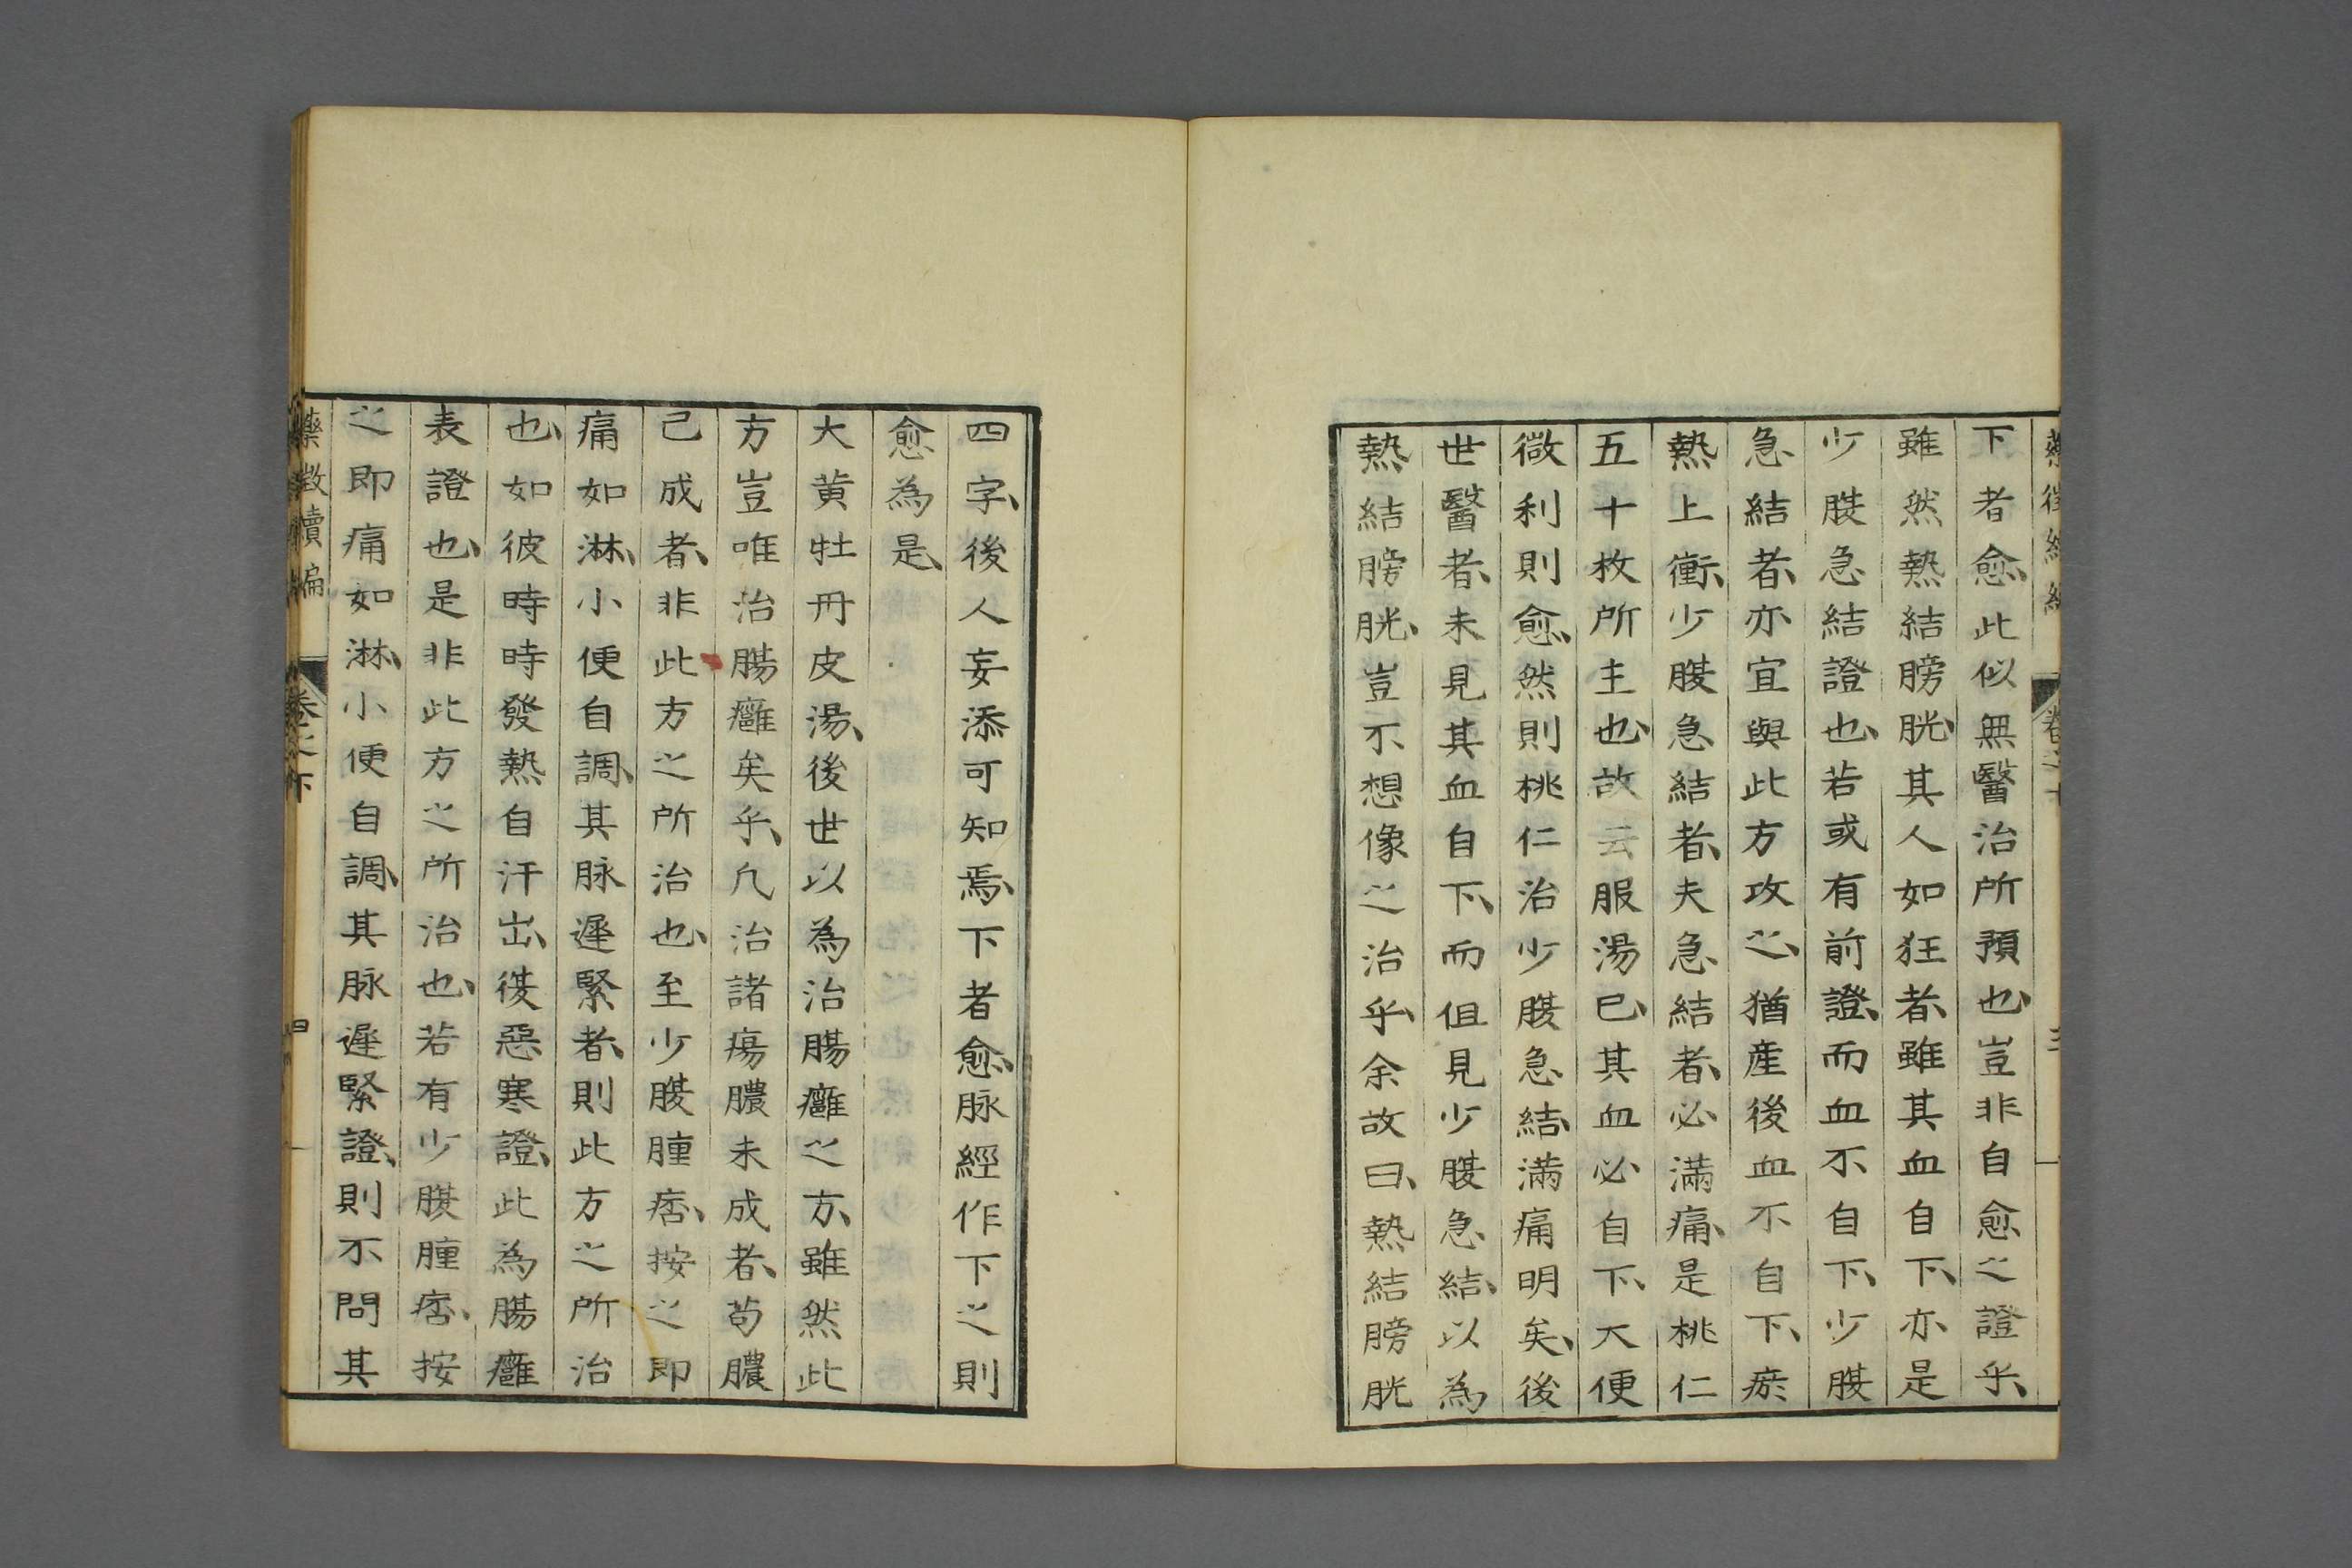 下者愈、此似無醫治所預也、豈非自愈之證乎、
雖然熱結膀胱、其人如狂者、雖其血自下、亦是
少腹急結證也、若或有前證、而血不自下、少腹
急結者、亦宜與此方攻之、猶産後血不自下、瘀
熱上衝、少腹急結者、夫急結者、必滿痛、是桃仁
五十枚所主也、故云服湯已、其血必自下、大便
微利則愈、然則桃仁治少腹急結、滿痛明矣、後
世醫者、未見其血自下、而但見少腹急結、以為
熱結膀胱、豈不想像之治乎、余故曰、熱結膀胱
四字、後人妄添可知焉、下者愈、脉經作下之則
愈為是、
大黄牡丹皮湯、後世以為治腸癰之方、雖然此
方豈唯治腸癰矣乎、凡治諸瘍膿未成者、苟膿
已成者、非此方之所治也、至少腹腫痞、按之即
痛如淋、小便自調、其脉遲緊者、則此方之所治
也、如彼時時發熱自汗出、復惡寒證、此為腸癰
表證也、是非此方之所治也、若有少腹腫痞、按
之即痛如淋、小便自調、其脉遲緊證、則不問其
藥徴續編 卷之下 四